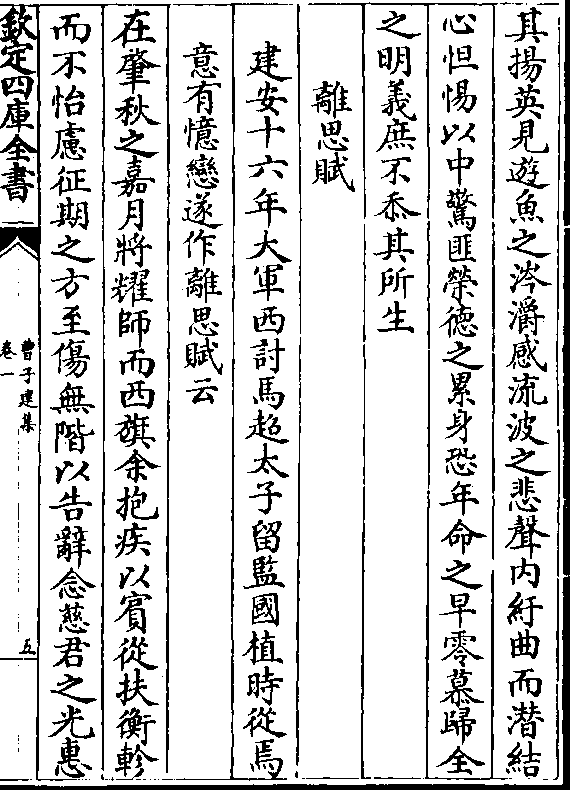 其揚英見遊魚之涔灂感流波之悲聲内紆曲而潜結
心怛惕以中驚匪榮德之累身恐年命之早零慕歸全
之明義庶不忝其所生
離思賦
建安十六年大軍西討馬超太子留監國植時從焉
意有憶戀遂作離思賦云
在肇秋之嘉月將耀師而西旗余抱疾以賓從扶衡軫
而不怡慮征期之方至傷無階以告辭念慈君之光惠
欽定四庫全書
曹子建集
卷一
五